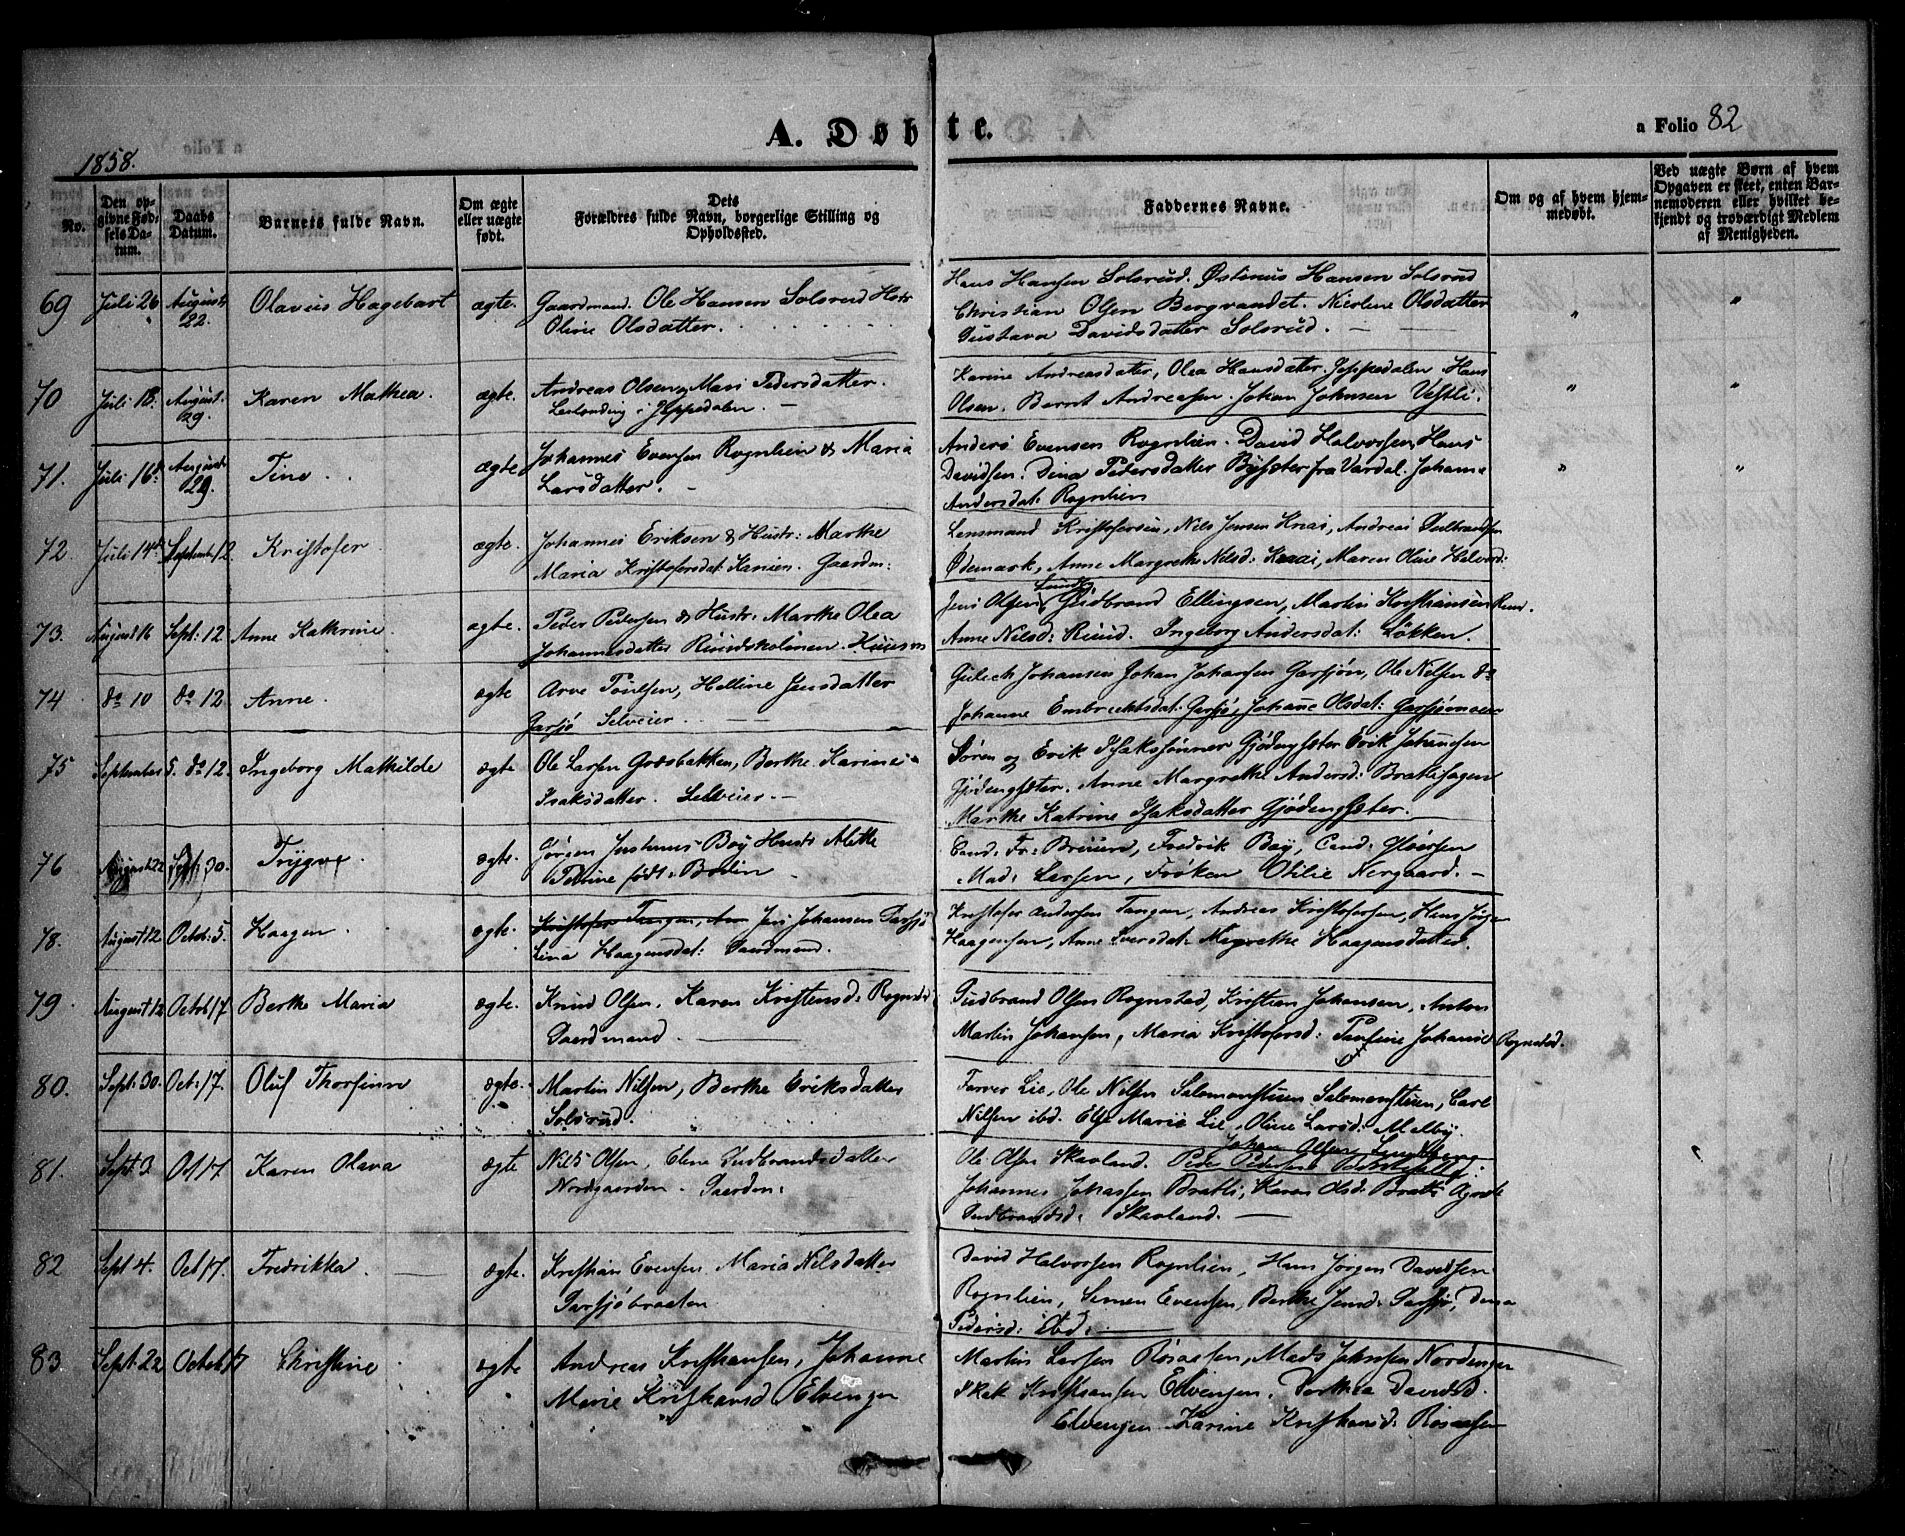 A. Døbte.
a Folio 82
1858.
No.
Den opgivne Fødsels Datum.
Daabs Datum.
Barnets fulde Navn.
Om ægte eller uægte født.
Dets Forældres fulde Navn, borgerlige Stilling og Opholdssted.
Faddernes Navne.
Om og af hvem hjemmedøbt.
Ved uægte Børn af hvem Opgaven er skeet, enten Barnemoderen eller hvilket bekjendt og troværdigt Medlem af Menigheden.
69 Juli 26 August 22. Olavus Hagebart ægte. Gaardmand. Ole Hansen Solsrud Hstr
Oline Olsdatter.
Hans Hansen Solsrud. Østinus Hansen Solsrud
Christian Olsen Bergrandet. Nicoline Olsdatter
Gustava Davidsdatter Solsrud. "
"
70 Juli 18. August 29. Karen Mathea. ægte. Andreas Olsen, Mari Pedersdatter.
i Jeppedalen.
Karine Andreasdatter, Olea Hansdatter Jeppedalen Hans
Olsen. Bernt Andreasen. Johan Johnsen Vestli. "
"
71. Juli 16d August 29. Tine. ægte Johannes Evensen Rognlien & Maria
Larsdatter.
Anders Evensen Rognlien. David Halvorsen, Hans
Davidsen. Dina Pedersdatter Bysæter fra Vardal. Johanna
Andersdat: Rognlien "
"
72. Juli 14d Septemb: 12. Kristofer. ægte. Johannes Eriksen & Hustr: Marthe
Maria Kristofersdat: Kanien. Gaardm:
Lensmand Kristofersen, Nils Jensen Knai, Andreas Gulbrandsen
Ødemark, Anne Margrethe Nilsd: Knai, Maren Oline Halvord:
73. August 16 Sept: 12. Anne Kathrine. ægte. Peder Pedersen & Hustr: Marthe Olea
Johannesdatter Ruudskolonien. Huusm
Jens Olsen, Gudbrand Ellingsen, Martin Kristiansen Ruud.
Anne Nilsd: Ruud. Ingeborg Andersdat: Løkken.
74 do 10 do 12. Anne. ægte Arve Poulsen, Helline Jensdatter
Garsjø Selveier.
Gulech Johansen Johan Johansen Garsjøn, Ole Nilsen do
Johanne Embrechtsdat: Garsjø, Johane Olsdat:
75 September 5. do 12. Ingeborg Mathilde ægte Ole Larsen Grøsbakken, Berthe Karine
Isaksdatter. Selveier.
Søren og Erik Isaksønner Gjødengsæter Erik Johannsen
Gjødengsæter. Anne Margrethe Andersd: Bratlihagen
Marthe Katrine Isaksdatter Gjødengsæter.
76 August 22 Sept 30. Trygve. ægte. Jørgen Justinus Bøy Hustr Alette
Petrine født: Bodin
Cand: Fr: Bruun, Fredrik Bøy, Cand: Iversen
Mad: Larsen, Frøken Otilie Nergaard.
78. August 12 Octob: 5. Haagen. ægte. Kristofer Tangen, An Jens Johansen Garsjø
Lina Haagensdat: Gaardmand.
Kristofer Andersen Tangen, Andreas Kristofersen, Hans Jørgen
Haagensen, Anne Iversdat: Margrethe Haagensdatter.
79. August 12 Octob 17. Berthe Maria ægte. Knud Olsen. Karen Kristensd: Rognstad
Gaardmand
Gudbrand Olsen Rognstad, Kristian Johansen, Anton
Martin Johansen, Maria Kristofersd: Pauline Johansd Rognstad.
80. Sept: 30. Oct: 17. Oluf Thorfinn ægte. Martin Nilsen, Berthe Eriksdatter
Solsrud.
Farver Lie, Ole Nilsen Salomonstuen Salomonstuen, Carl
Nilsen ibd. Else Marie Lie, Oline Larsd: Melby.
81. Sept 3 Oct 17. Karen Olava ægte Nils Olsen, Elene Gudbrandsdatter
Nordgaarden. Gaardm:
Johan Olsen
Ole Olsen Skavland. Peder Pedersen
Johannes Johassen Bratli, Karen Olsd: Bratli Agnete
Gudbrandsd: Skavland.
82 Sept 4. Oct 17. Fredrikka. ægte. Kristian Evensen Maria Nilsdatter
Garsjøbraaten
David Halvorsen Rognlien, Hans Jørgen Davidsen
Rognlien, Simen Evensen, Berthe Jensd: Garsjø, Dina
Pedersd: ibd:
83 Sept: 22 Octob 17 Christine ægte Andreas Kristiansen, Johanne
Marie Kristiansd Elvengen
Martin Larsen Rosaasen, Mads Johnsen Nordengen
Isak Kristiansen Elvengen. Dorthea Davidsd.
Elvengen Karine Kristiansd: Rosaasen